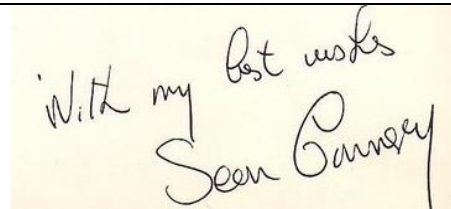 With my best wishes
Sean Connery